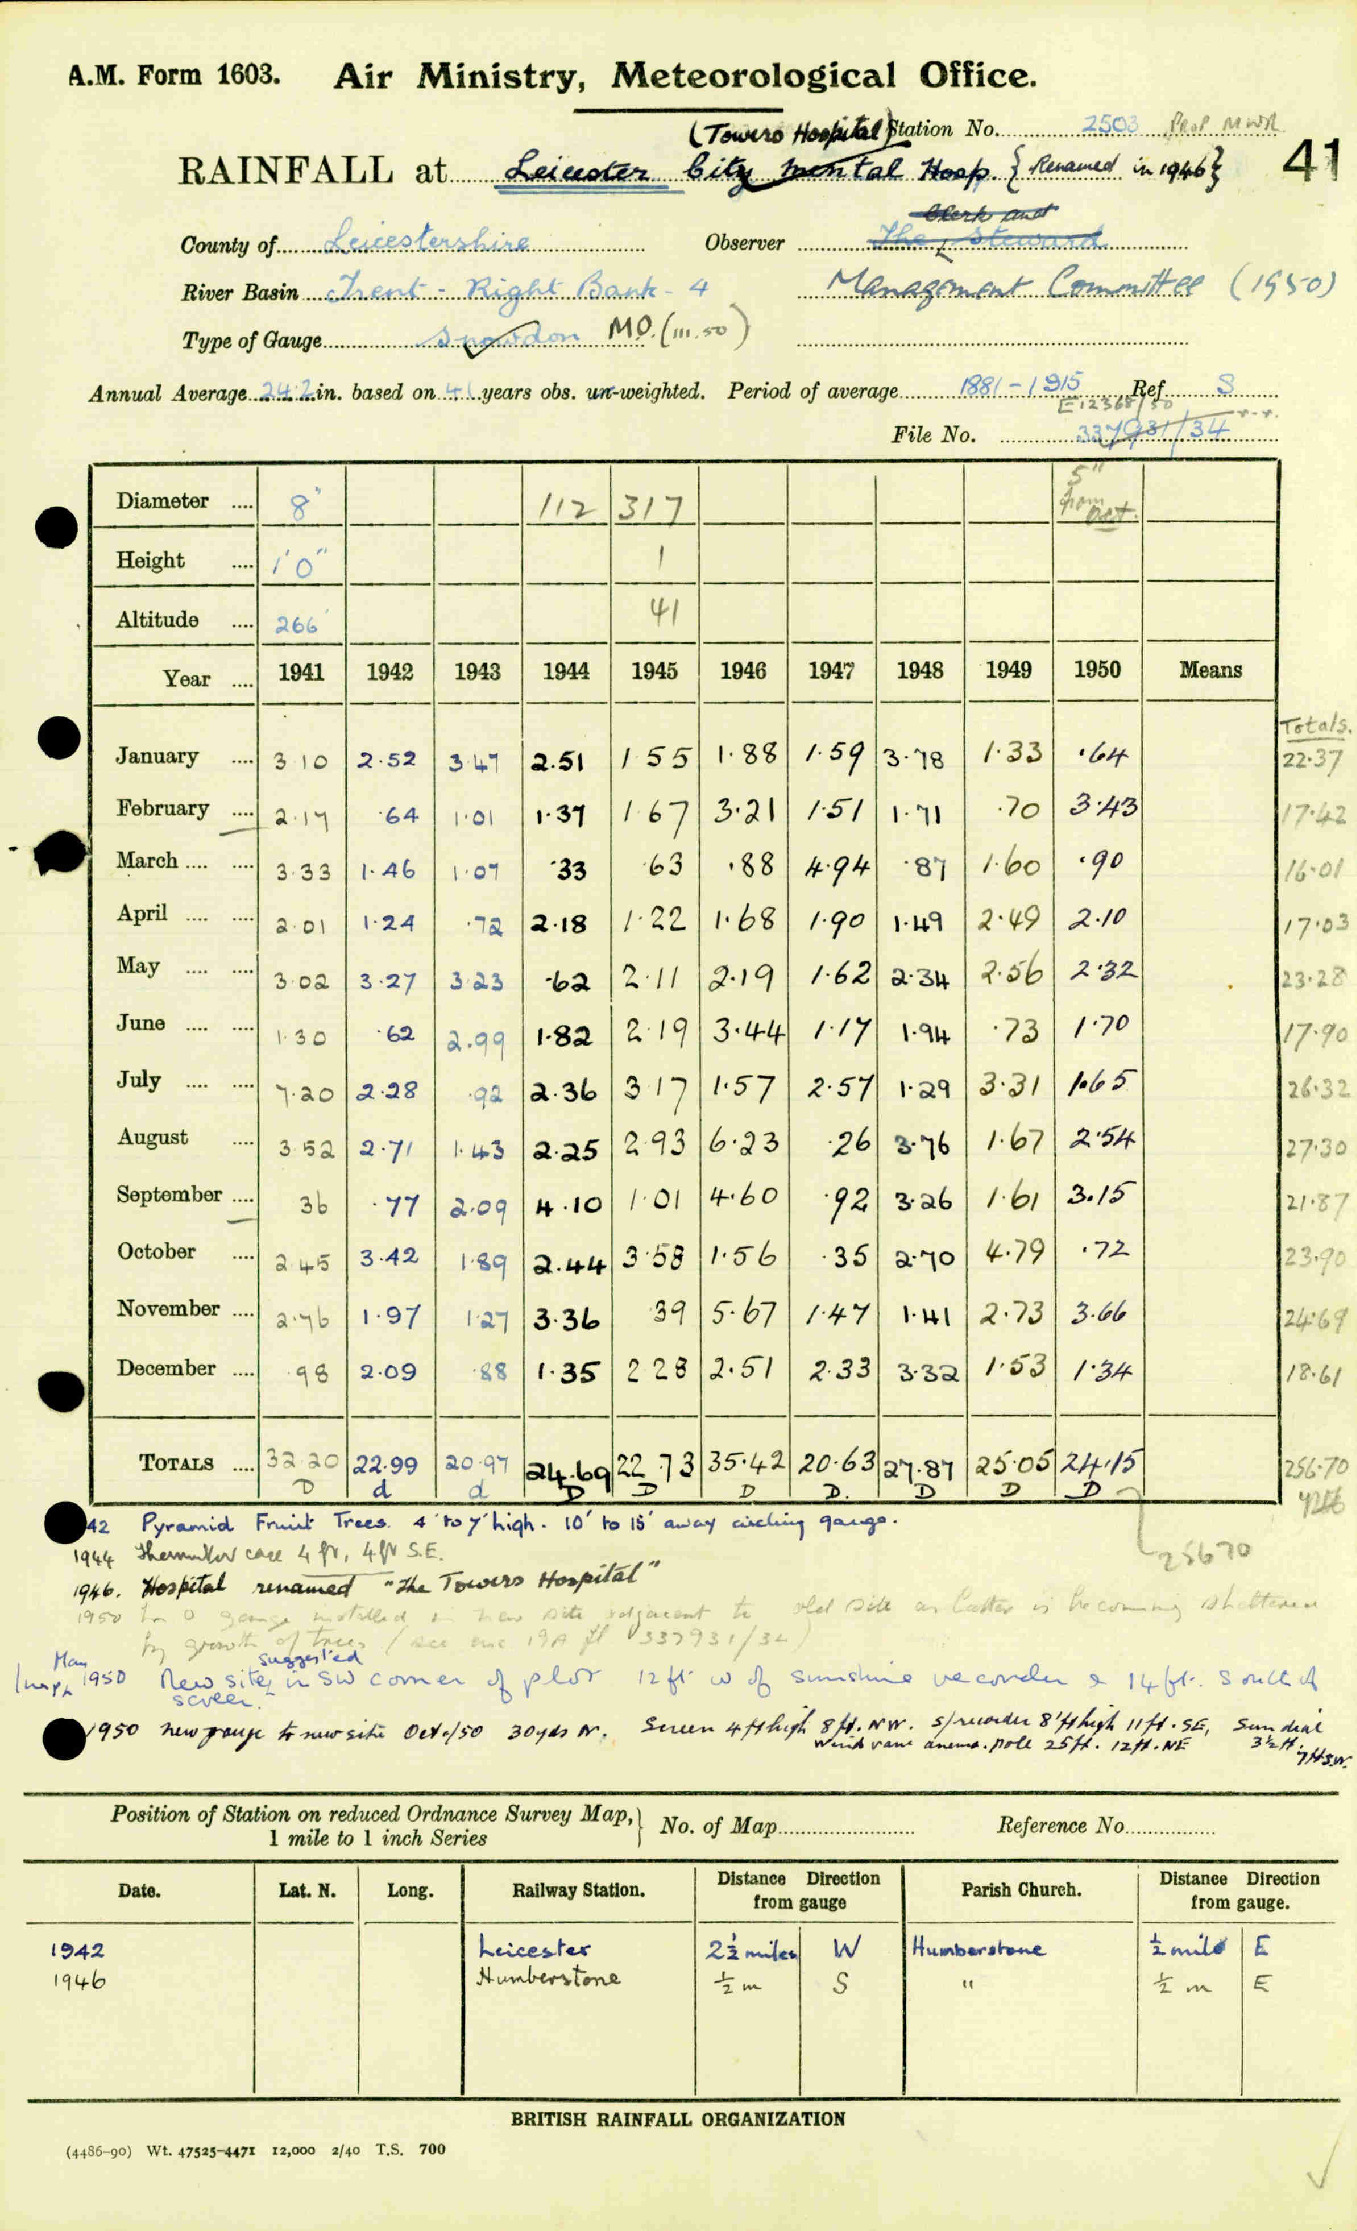 A.M. Form 1603. Air Ministry, Meteorological Office.
(Towers Hospital) Station No. 2503 Prop MWR
RAINFALL at Leicester City Mental Hosp. {Renamed in 1946} 41
Clerk and
County of Leicestershire Observer The Steward
River Basin Trent - Right Bank - 4 Management Committee (1950)
Type of Gauge Snowdon M.O. (III.50)
Annual Average 24.2 in. based on 41 years obs. un-weighted. Period of average 1881-1915 Ref. S
E12368/50
File No. 337931/34
Diameter 8" 112 317 5" from Oct.
Height 1'0" 1
Altitude 266' 41
Year 1941 1942 1943 1944 1945 1946 1947 1948 1949 1950 Means
Totals.
January 3.10 2.52 3.47 2.51 1.55 1.88 1.59 3.78 1.33 .64 22.37
February 2.17 .64 1.01 1.37 1.67 3.21 1.51 1.71 .70 3.43 17.42
March 3.33 1.46 1.07 .33 .63 .88 4.94 .87 1.60 .90 16.01
April 2.01 1.24 .72 2.18 1.22 1.68 1.90 1.49 2.49 2.10 17.03
May 3.02 3.27 3.23 .62 2.11 2.19 1.62 2.34 2.56 2.32 23.28
June 1.30 .62 2.99 1.82 2.19 3.44 1.17 1.94 .73 1.70 17.90
July 7.20 2.28 .92 2.36 3.17 1.57 2.57 1.29 3.31 1.65 26.32
August 3.52 2.71 1.43 2.25 2.93 6.23 .26 3.76 1.67 2.54 27.30
September 36 .77 2.09 4.10 1.01 4.60 .92 3.26 1.61 3.15 21.87
October 2.45 3.42 1.89 2.44 3.58 1.56 .35 2.70 4.79 .72 23.90
November 2.76 1.97 1.27 3.36 39 5.67 1.47 1.41 2.73 3.66 24.69
December .98 2.09 .88 1.35 2.28 2.51 2.33 3.32 1.53 1.34 18.61
TOTALS 32.20 22.99 20.97 24.69 22.73 35.42 20.63 27.87 25.05 24.15 256.70
D d d D D D D. D D D
42 Pyramid Fruit Trees. 4' to 7' high. 10' to 15' away circling gauge.
1944 Thermometer case 4 ft, 4 ft S.E. 25670
1946. Hospital renamed "The Towers Hospital"
1950 gauge installed in new site adjacent to old site as latter is becoming sheltered
by growth of trees (see enc 19A fl 337931/34)
May suggested
Insp. 1950 New site, in SW corner of plot 12 ft W of sunshine recorder & 14 ft. South of
screen.
1950 new gauge to new site Oct/50 30yds N. Screen 4 ft high 8 ft. NW. S/recorder 8' ft high 11 ft. SE, Sun dial 3½ ft. 7 ft SW.
Wind vane anemo. pole 25 ft. 12 ft. NE
Position of Station on reduced Ordnance Survey Map, 1 mile to 1 inch Series No. of Map Reference No.
Date. Lat. N. Long. Railway Station. Distance Direction from gauge Parish Church. Distance Direction from gauge.
1942 Leicester 2½ miles W Humberstone ½ mile E
1946 Humberstone ½ m S " ½ m E
BRITISH RAINFALL ORGANIZATION
(4486-90) Wt. 47525-4471 12,000 2/40 T.S. 700